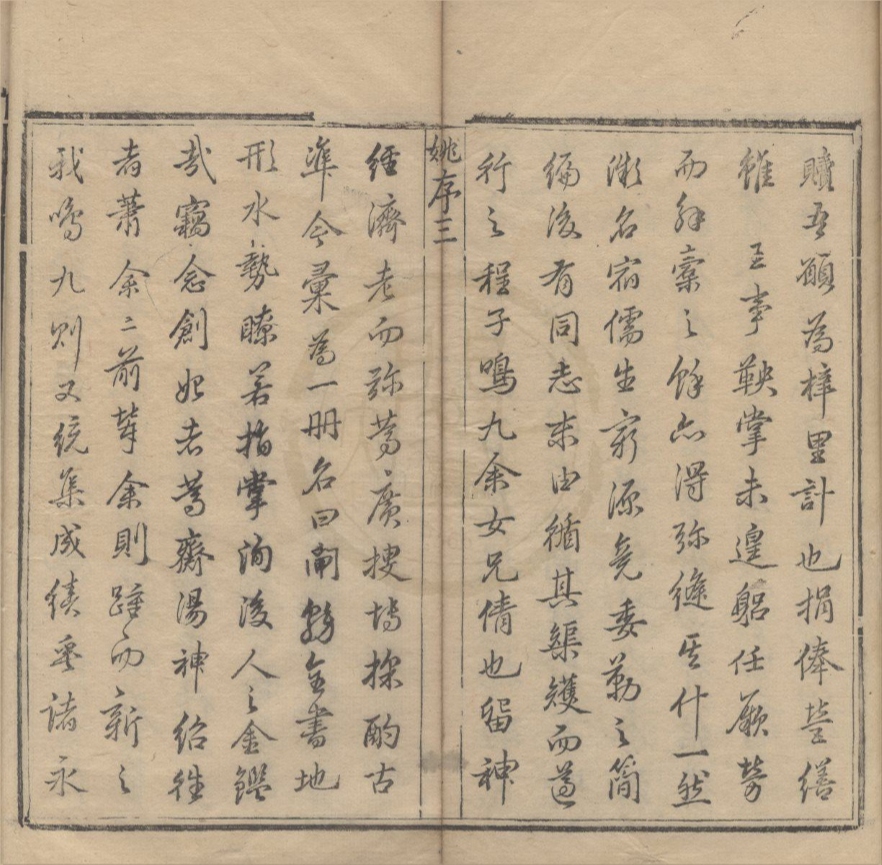 贖吾願為梓里計也捐俸營繕
雖 王事鞅掌未遑躬任厥勞
而解橐之餘亦得弥縫其什一然
微名宿儒生窮源竟委勒之簡
編後有同志末由循其榘矱而遵
行之程子鳴九余女兄倩也留神
姚序三
經濟老而弥篤廣搜博採酌古
準今彙為一册名曰閘務全書地
形水勢瞭若指掌洵後人之金鑑
哉竊念創始者篤齋湯神紹徃
者蕭余二前輩余則踵而新之
我鳴九則又統集成績垂諸永